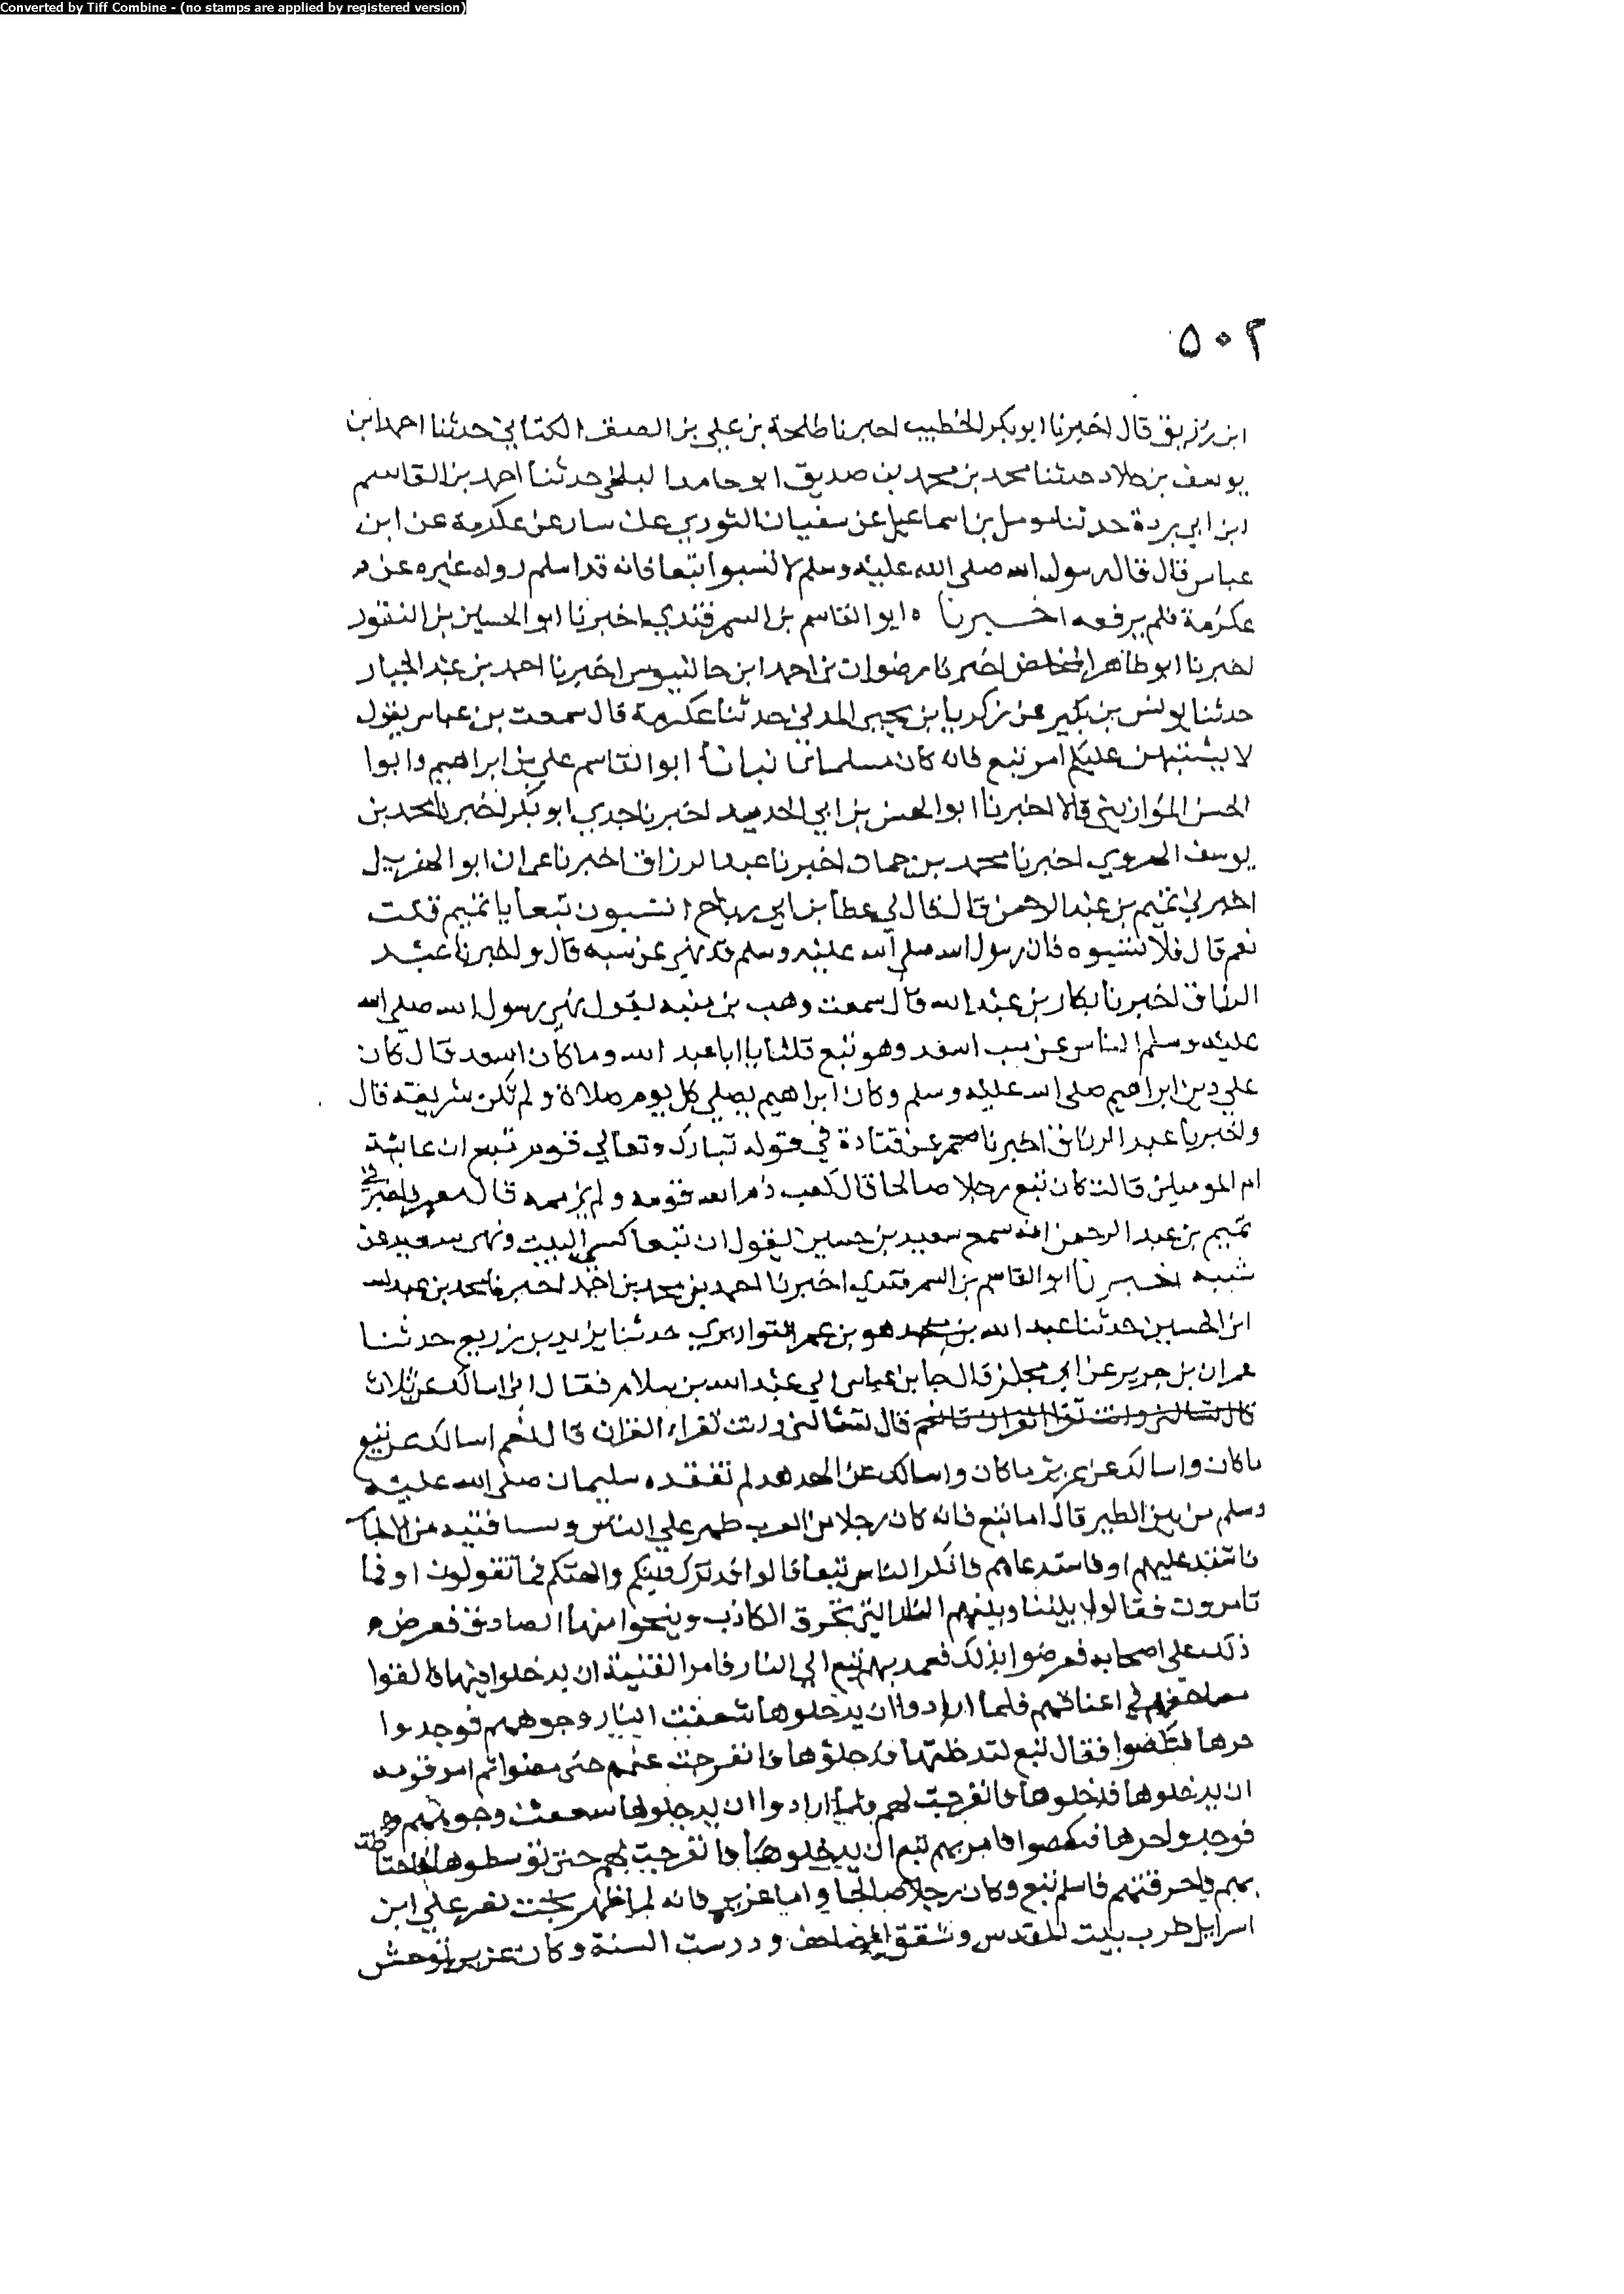 Converted by Tiff Combine - (no stamps are applied by registered version)
٥٠٢
ابن رزيق قال اخبرنا ابو بكر الخطيب اخبرنا طلحة بن علي بن الصقر الكتاني حدثنا احمد ابن
يوسف بن خلاد حدثنا محمد بن محمد بن صديق ابو حامد البلخي حدثنا احمد بن القاسم
ابن ابي بردة حدثنا مومل بن اسماعيل عن سفيان الثوري عن سار عن عكرمة عن ابن
عباس قال قال رسول الله صلى الله عليه وسلم لا تسبوا تبعا فانه قد اسلم رواه غيره عن
عكرمة فلم يرفعه اخبرنا ابو القاسم بن السمرقندي اخبرنا ابو الحسين بن النقور
اخبرنا ابو طاهر المخلص اخبرنا رضوان بن احمد ابن جالنيوس اخبرنا احمد بن عبد الجبار
حدثنا يونس بن بكير عن زكريا بن يحيى المدني حدثنا عكرمة قال سمعت بن عباس يقول
لا يشتبهن عليكم امر تبع فانه كان مسلما انبانا ابو القاسم علي بن ابراهيم وابوا
الحسن الموازيني قالا اخبرنا ابو الحسن بن ابي الحديد اخبرنا جدي ابو بكر اخبرنا محمد بن
يوسف الهروي اخبرنا محمد بن حماد اخبرنا عبد الرزاق اخبرنا عمران ابو الهزيل
اخبرني تميم بن عبد الرحمن قال قال لي عطا بن ابي رباح اتسبون تبعا يا تميم قلت
نعم قال فلا تسبوه فان رسول الله صلى الله عليه وسلم قد نهى عن سبه قال واخبرنا عبد
الرزاق اخبرنا بكار بن عبد الله قال سمعت وهب بن منبه يقول نهى رسول الله صلى الله
عليه وسلم الناس عن سب اسعد وهو تبع قلنا يا ابا عبد الله وما كان اسعد قال كان
علي دين ابراهيم صلى الله عليه وسلم وكان ابراهيم يصلي كل يوم صلاة ولم تكن شريعة قال
واخبرنا عبد الرزاق اخبرنا معمر عن قتادة في قوله تبارك وتعالي قوم تبع ان عايشة
ام المومنين قالت كان تبع رجلا صالحا قال كعب ذم الله قومه ولم يذمه قال معمر واخبرني
تميم بن عبد الرحمن انه سمع سعيد بن جبير يقول ان تبعا كسى البيت ونهى سعيد عن
سبه اخبرنا ابو القاسم بن السمرقندي اخبرنا احمد بن محمد بن احمد اخبرنا محمد بن عبد الله
ابن الحسين حدثنا عبد الله بن محمد هو بن عمر القواريري حدثنا يزيد بن زريع حدثنا
عمران بن جرير عن ابي مجلز قال جا بن عباس الي عبد الله بن سلام فقال اني اسالك عن ثلاث
قال تسالني وانت تقرا القران قال نعم قال تسالني وانت تقراء القران قال نعم اسالك عن تبع
ما كان واسالك عن عزير ما كان واسالك عن الهدهد لم تفقده سليمان صلى الله عليه
وسلم من بين الطير قال اما تبع فانه كان رجلا من العرب ظهر علي الناس وسبا فتية من الاحبار
فاستدعاهم فانكر الناس تبعا قالوا قد ترك دينكم والهتكم فما تقولون او فما
تامرون فقالوا بيننا وبينهم النار التي تحرق الكاذب وينجوا منها الصادق فعرض
ذلك على اصحابه فعرضوا بذلك فعمد بهم تبع الي النار فامر الفتية ان يدخلوا فيها فالقوا
مصاحفهم في اعناقهم فلما ارادوا ان يدخلوها سعفت النار وجوههم فوجدوا
حرها فنكصوا فقال تبع لتدخلنها فدخلوها فانفرجت عنهم حتى مضوا ثم امر قومه
ان يدخلوها فدخلوها فانفرجت لهم فلما ارادوا ان يدخلوها سعفت وجوههم
فوجدوا حرها فنكصوا فامر بهم تبع ان يدخلوها فانفرجت لهم حتى توسطوها فاحتاطت
بهم فاحرقتهم فاسلم تبع وكان رجلا صالحا واما عزير فانه لما ظهر بخت نصر علي ابن
اسرايل خرب بيت المقدس وشقق المصاحف ودرست السنة وكان عزير توحش